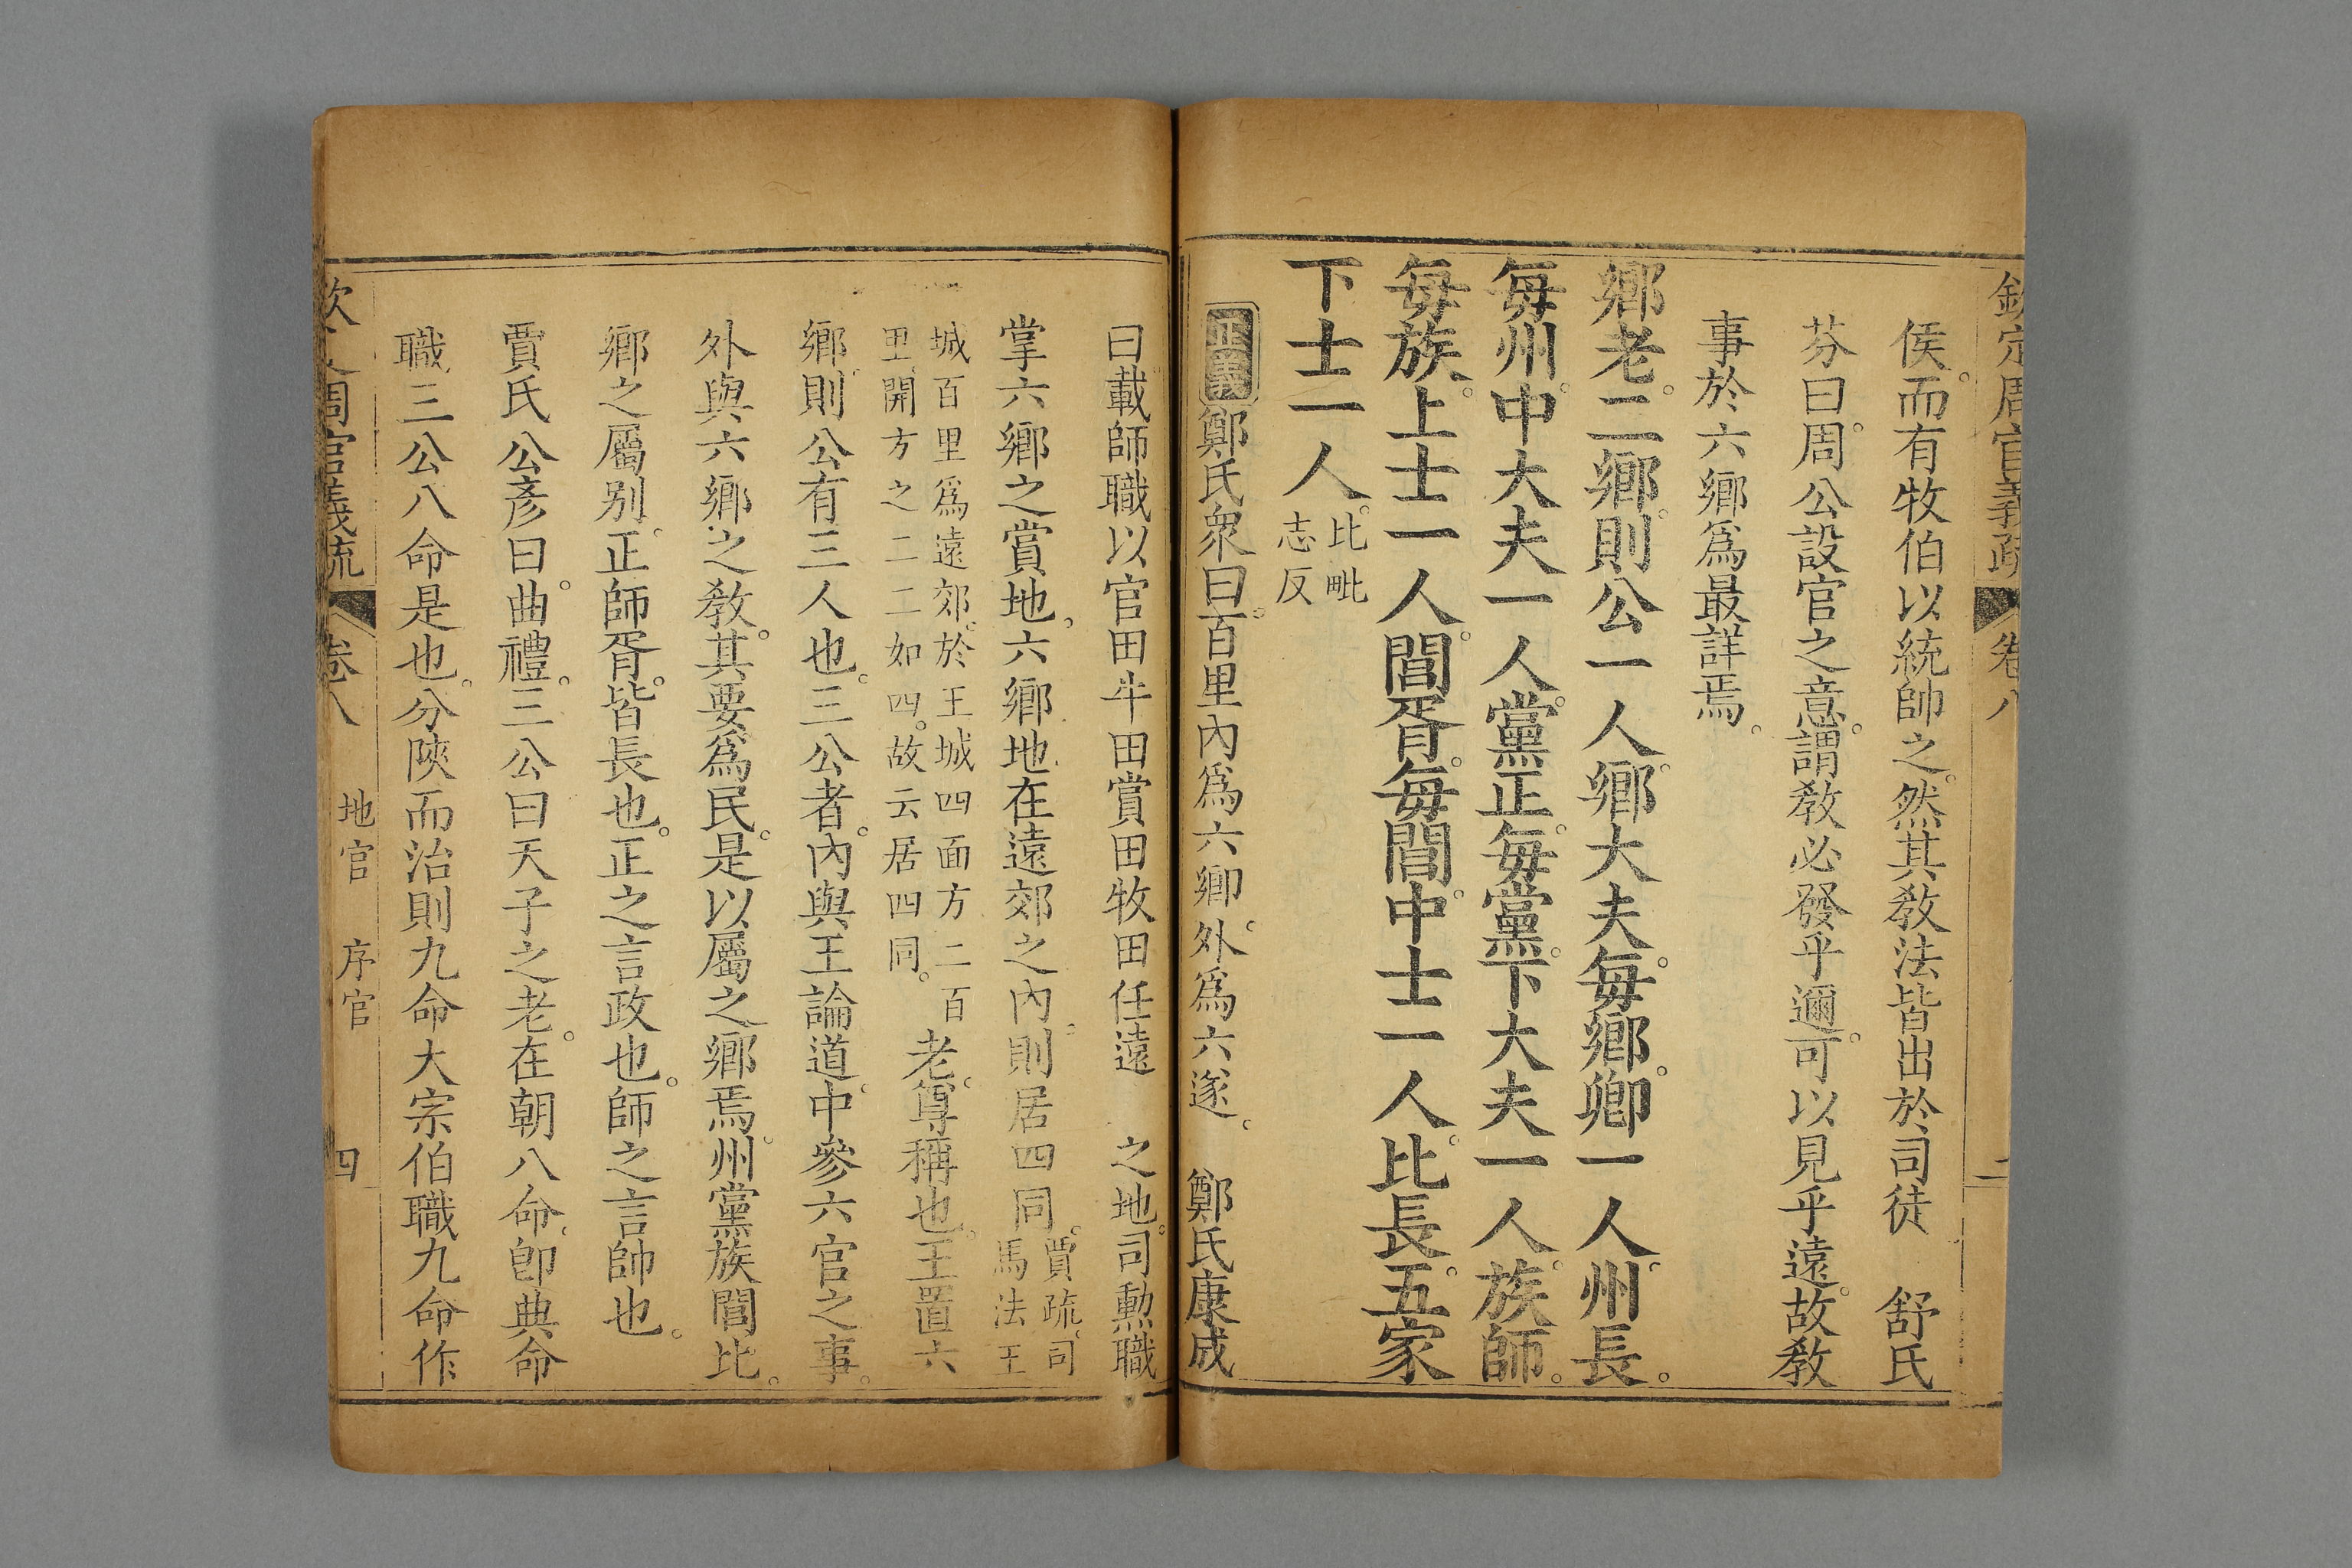 欽定周官義疏 卷八
侯。而有牧伯以統帥之。然其敎法皆出於司徒 舒氏
芬曰。周公設官之意。謂敎必發乎邇。可以見乎遠。故敎
事於六鄉爲最詳焉。
鄉老。二鄉。則公一人。鄉大夫。每鄉。卿一人。州長。
每州。中大夫一人。黨正。每黨。下大夫一人。族師。
每族。上士一人。閭胥。每閭。中士一人。比長。五家
下士一人。比毗
志反
正義鄭氏衆曰。百里內爲六鄉。外爲六遂。 鄭氏康成
曰載師職以官田牛田賞田牧田任遠 之地。司勲職
掌六鄉之賞地。六鄉地在遠郊之內。則居四同。賈疏。司
馬法王
城百里爲遠郊。於王城四面方二百
里開方之二二如四。故云居四同。
老。尊稱也。王置六
鄉。則公有三人也。三公者。內與王論道。中參六官之事。
外與六鄉之敎。其要爲民。是以屬之鄉焉。州黨族閭比。
鄉之屬别。正師胥。皆長也。正之言政也。師之言帥也。
賈氏公彥曰。曲禮。三公曰天子之老。在朝八命。卽典命
職。三公八命是也。分陝而治則九命大宗伯職九命作
周官義疏 卷八 地官 序官 四